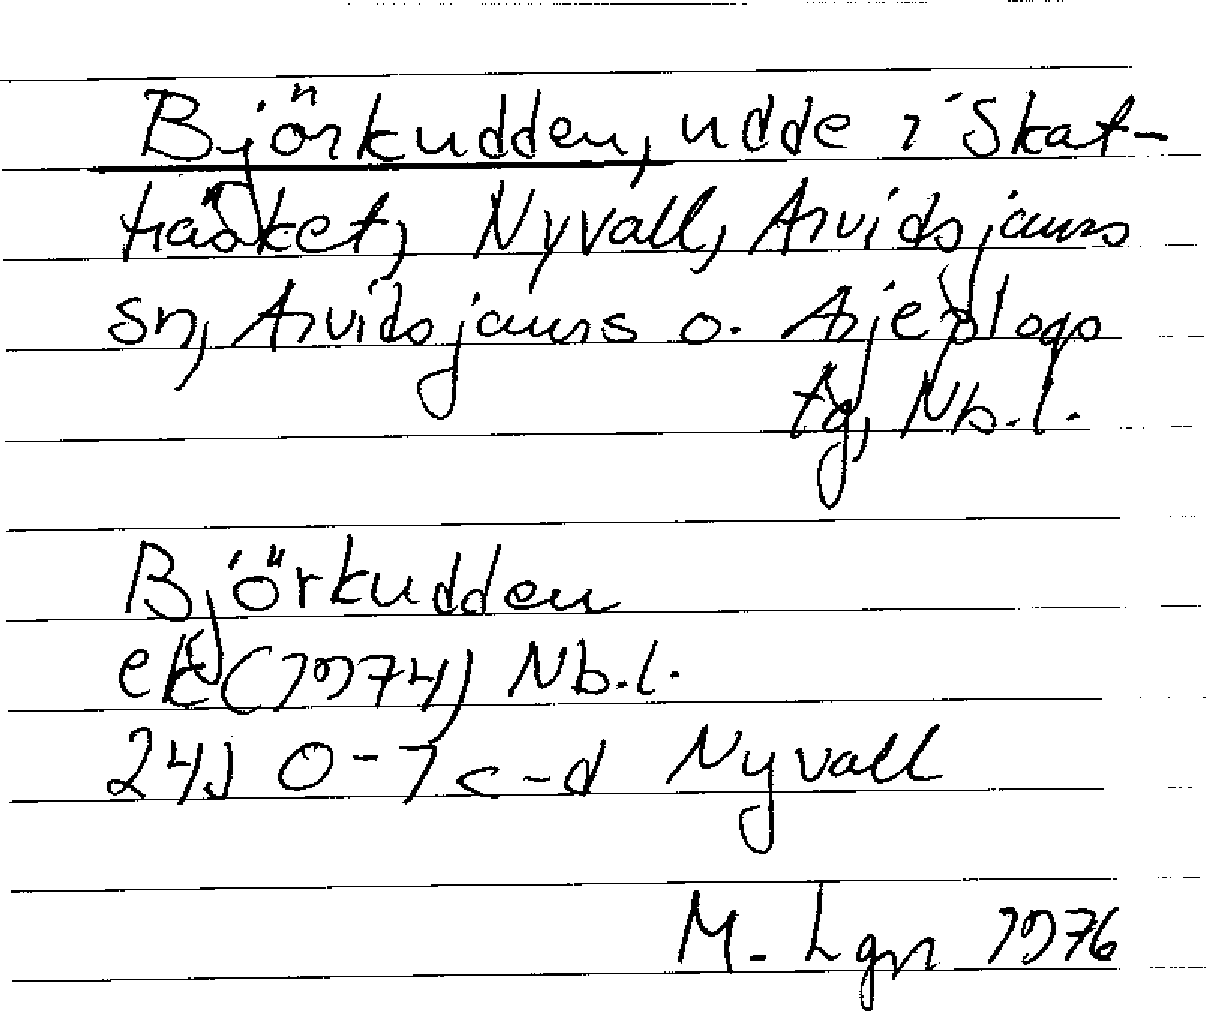 Björkudden, udde i Skat-
träsket, Nyvall, Arvidsjaurs
sn, Arvidsjaurs o. Arjeplogs
tg, Nb.l.
Björkudden
ek (1974) Nb.l.
24J 0-1 c-d Nyvall
M. Lgn 1976